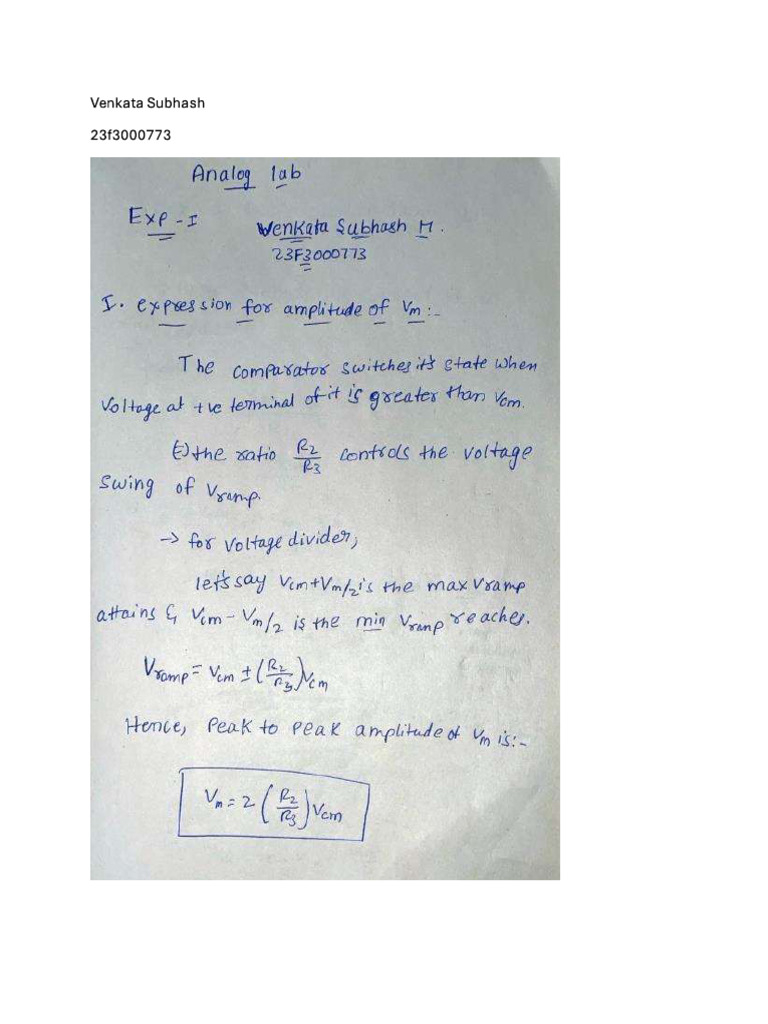 Venkata Subhash
23f3000773
Analog lab
Exp - I
Venkata Subhash M.
23F3000773
I. expression for amplitude of Vm :-
The comparator switches it's state when
voltage at +ve terminal of it is greater than Vcm.
the ratio R2/R3 controls the voltage
swing of Vramp.
→ for voltage divider,
let's say Vcm+Vm/2 is the max Vramp
attains & Vcm - Vm/2 is the min Vramp reaches.
Vramp = Vcm ± (R2/R3)Vcm
Hence, Peak to peak amplitude of Vm is:-
Vm = 2 (R2/R3) Vcm